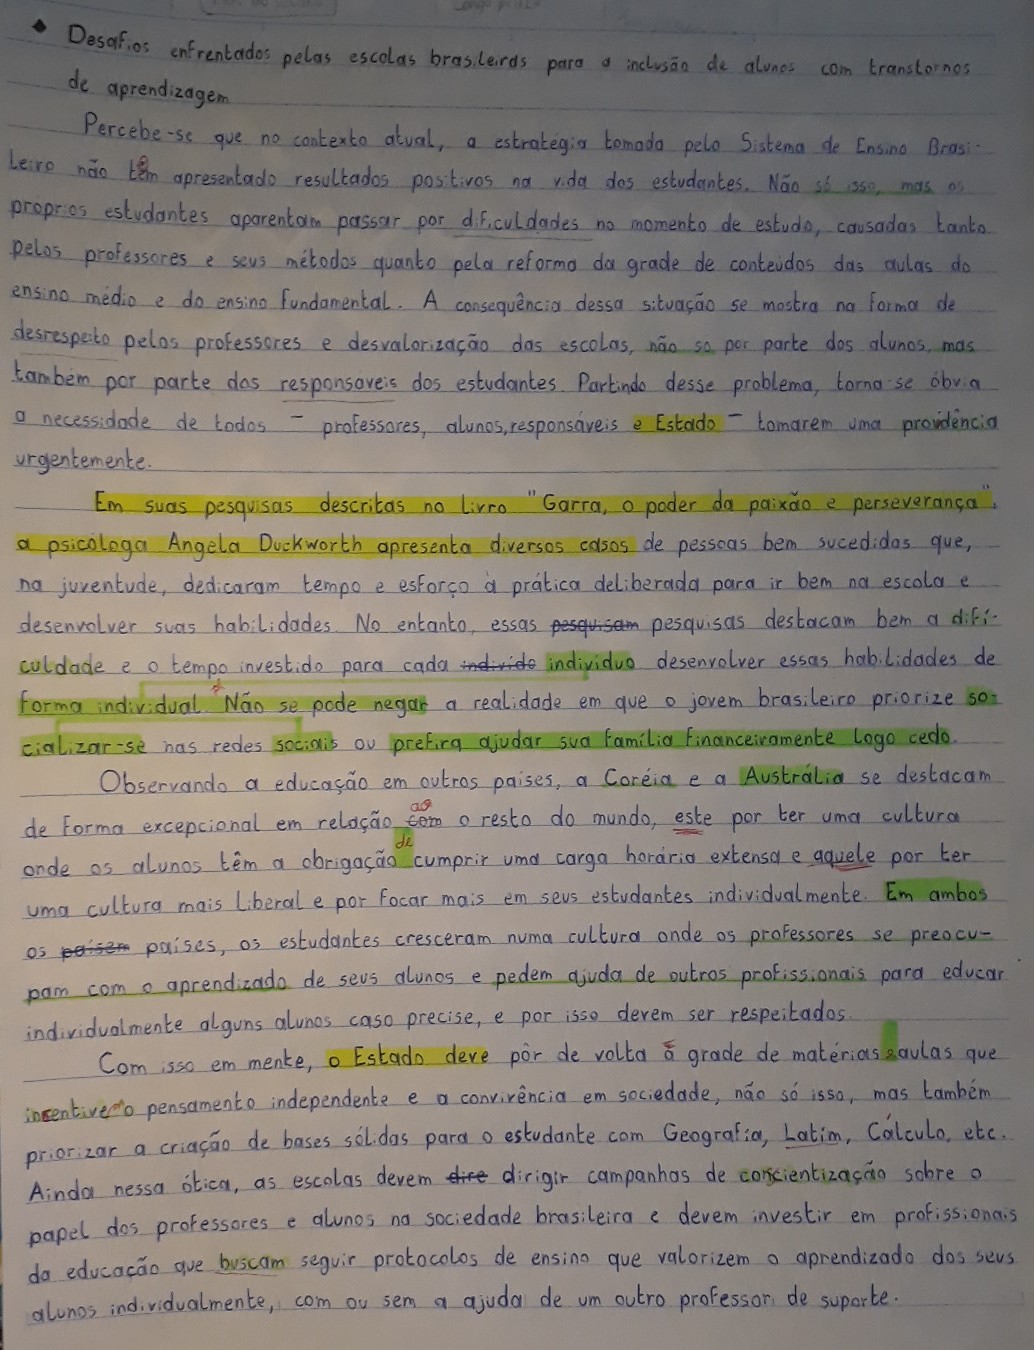 Desafios enfrentados pelas escolas brasileiras para a inclusão de alunos com transtornos
de aprendizagem
Percebe-se que no contexto atual, a estratégia tomada pelo Sistema de Ensino Brasi-
leiro não têm apresentado resultados positivos na vida dos estudantes. Não só isso, mas os
proprios estudantes aparentam passar por dificuldades no momento de estudo, causadas tanto
pelos professores e seus métodos quanto pela reforma da grade de conteúdos das aulas do
ensino médio e do ensino fundamental. A consequência dessa situação se mostra na forma de
desrespeito pelos professores e desvalorização das escolas, não so por parte dos alunos, mas
também por parte dos responsaveis dos estudantes. Partindo desse problema, torna-se óbvia
a necessidade de todos – professores, alunos, responsáveis e Estado – tomarem uma providência
urgentemente.
Em suas pesquisas descritas no livro "Garra, o poder da paixão e perseverança",
a psicóloga Angela Duckworth apresenta diversos casos de pessoas bem sucedidas que,
na juventude, dedicaram tempo e esforço à prática deliberada para ir bem na escola e
desenvolver suas habilidades. No entanto, essas pesquisam pesquisas destacam bem a difi-
culdade e o tempo investido para cada individo individuo desenvolver essas habilidades de
forma individual. Não se pode negar a realidade em que o jovem brasileiro priorize so-
cializar-se nas redes sociais ou prefira ajudar sua família financeiramente logo cedo.
Observando a educação em outros países, a Coréia e a Austrália se destacam
ao
de forma excepcional em relação com o resto do mundo, este por ter uma cultura
de
onde os alunos têm a obrigação cumprir uma carga horária extensa e aquele por ter
uma cultura mais liberal e por focar mais em seus estudantes individualmente. Em ambos
os paisem países, os estudantes cresceram numa cultura onde os professores se preocu-
pam com o aprendizado de seus alunos e pedem ajuda de outros profissionais para educar
individualmente alguns alunos caso precise, e por isso devem ser respeitados.
Com isso em mente, o Estado deve pôr de volta à grade de matérias aulas que
insentive o pensamento independente e a convivência em sociedade, não só isso, mas também
priorizar a criação de bases sólidas para o estudante com Geografia, Latim, Cálculo, etc.
Ainda nessa ótica, as escolas devem dire dirigir campanhas de conscientização sobre o
papel dos professores e alunos na sociedade brasileira e devem investir em profissionais
da educação que buscam seguir protocolos de ensino que valorizem o aprendizado dos seus
alunos individualmente, com ou sem a ajuda de um outro professor de suporte.